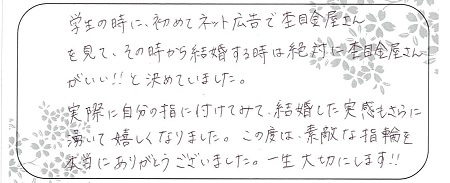 学生の時に、初めてネット広告で杢目金屋さん
を見て、その時から結婚する時は絶対に杢目金屋さん
がいい!!と決めていました。
実際に自分の指に付けてみて、結婚した実感もさらに
湧いて嬉しくなりました。この度は、素敵な指輪を
本当にありがとうございました。一生大切にします!!